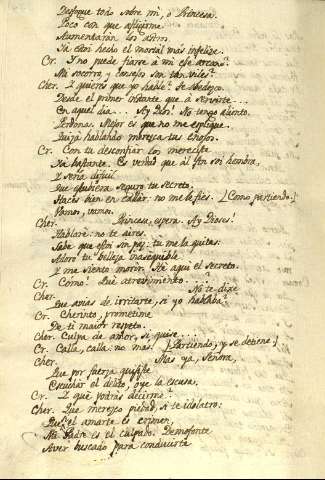 Desfogue todo sobre mi, o Princesa.
Poco con que afligirme
Aumentarán los astros.
Ya estoi hecho el mortal mas infelize.
Cr. Y no puede fiarse a mi ese arcano?
Mi socorro y consejo son tan viles?
Cher. Y quieres que yo hable? Te obedezco.
Desde el primer instante que à servirte...
En aquel dia... Ay Dios! No tengo aliento.
Perdona. Mejor es que no me esplique.
Quizá hablando merezca tus enojos.
Cr. Con tu desconfiar los mereciste
Ya bastante. Es verdad que al fin soi hembra,
Y seria dificil
Que estubiera seguro tu secreto.
Haces bien en callar: no me le fies. [Como partiendo.]
Vamos, vamos.
Cher. Princesa, espera. Ay Dioses!
Hablaré: no te aires.
Sabe que estoi sin paz: tu me la quitas:
Adoro tu belleza inasequible
Y me siento morir. He aqui el secreto.
Cr. Como! Que atrevimiento...
Cher. No te dixe
Que avias de irritarte, si yo hablaba?
Cr. Cherinto, prometime
De ti maior respeto.
Cher. Culpa de amor, si, quise...
Cr. Calla, calla: no mas. [Partiendo, y se detiene.]
Cher. Mas ya, Señora,
Que por fuerza quisiste
Escuchar el delito, oye la escusa.
Cr. Y qué podrás decirme?
Cher. Que merezco piedad, si te idolatro:
Que si el amarte es crimen,
Mi Padre es el culpado. Demofonte
Aver buscado para conducirte